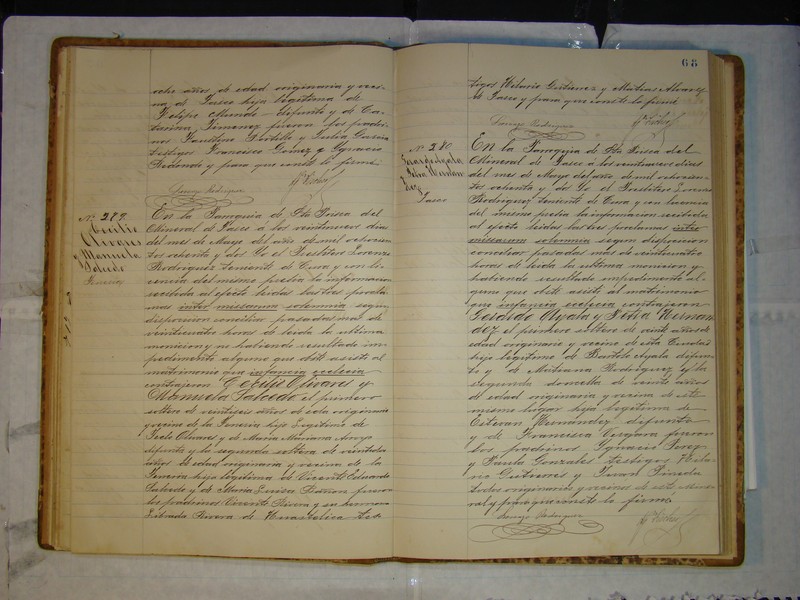 ocho años de edad originaria y veci
na de Pasco hija legitima de
Felipe Mundo difunto y de Ca
tarina Jimenez fueron los padri
nos Faustino Portillo y Julia Garcia
testigos Francisco Gomez e Ygnacio
Redondo y para que conste lo firmé
Lorenzo Rodriguez
Nº 289.
Cecilio
Olivares
y Manuela
Salcedo
En la Parroquia de Sta Rosa del
Mineral de Pasco á los veintinueve dias
del mes de Mayo del año de mil ochocien
tos ochenta y dos Yo el Presbitero Lorenzo
Rodriguez Teniente de Cura y con li
cencia del mismo previa la informacion
recibida al efecto leidas las tres procla
mas inter missarum solemnia segun
disposicion conciliar pasadas mas de
veinticuatro horas de leida la ultima
monicion y no habiendo resultado im
pedimento alguno que obste asisti al
matrimonio que infancia eclecia
contrajeron Cecilio Olivares y
Manuela Salcedo el primero
soltero de veintiseis años de edad originario
y vecino de la hijo legitimo de
Olivares y de Maria Mariana Arroyo
difunta y la segunda soltera de veintidos
años de edad originaria y vecina de la
hija legitima de Vicente Eduardo
Salcedo y de Maria Luisa fueron
los padrinos Vicente Rivera y su hermana
Librada Rivera de
68
tigos Hilario Gutierrez y Matias Alvarez
de Pasco y para que conste lo firmé
Lorenzo Rodriguez
Nº 290
Gerardo Ayala
y Petra Hernandez
Pasco
En la Parroquia de Sta Rosa del
Mineral de Pasco á los veintinueve dias
del mes de Mayo del año de mil ochocien
tos ochenta y dos Yo el Presbitero Lorenzo
Rodriguez Teniente de Cura y con licencia
del mismo previa la informacion recibida
al efecto leidas las tres proclamas inter
missarum solemnia segun disposicion
conciliar pasadas mas de veinticuatro
horas de leida la ultima monicion y no
habiendo resultado impedimento al
guno que obste asisti al matrimonio
que infancia eclecia contrajeron
Gerardo Ayala y Petra Hernan
dez el primero soltero de veinte años de
edad originario y vecino de esta Ciudad
hijo legitimo de Bartolo Ayala difun
to y de Matiana Rodriguez y la
segunda doncella de veinte años
de edad originaria y vecina de este
mismo lugar hija legitima de
Estevan Hernandez difunto
y de Francisca Vergara fueron
los padrinos Ygnacio Perez
y Paula Gonzales testigos Hila
rio Gutierres y Pineda
todos originarios y vecinos de este Mine
ral y para que conste lo firmé
Lorenzo Rodriguez